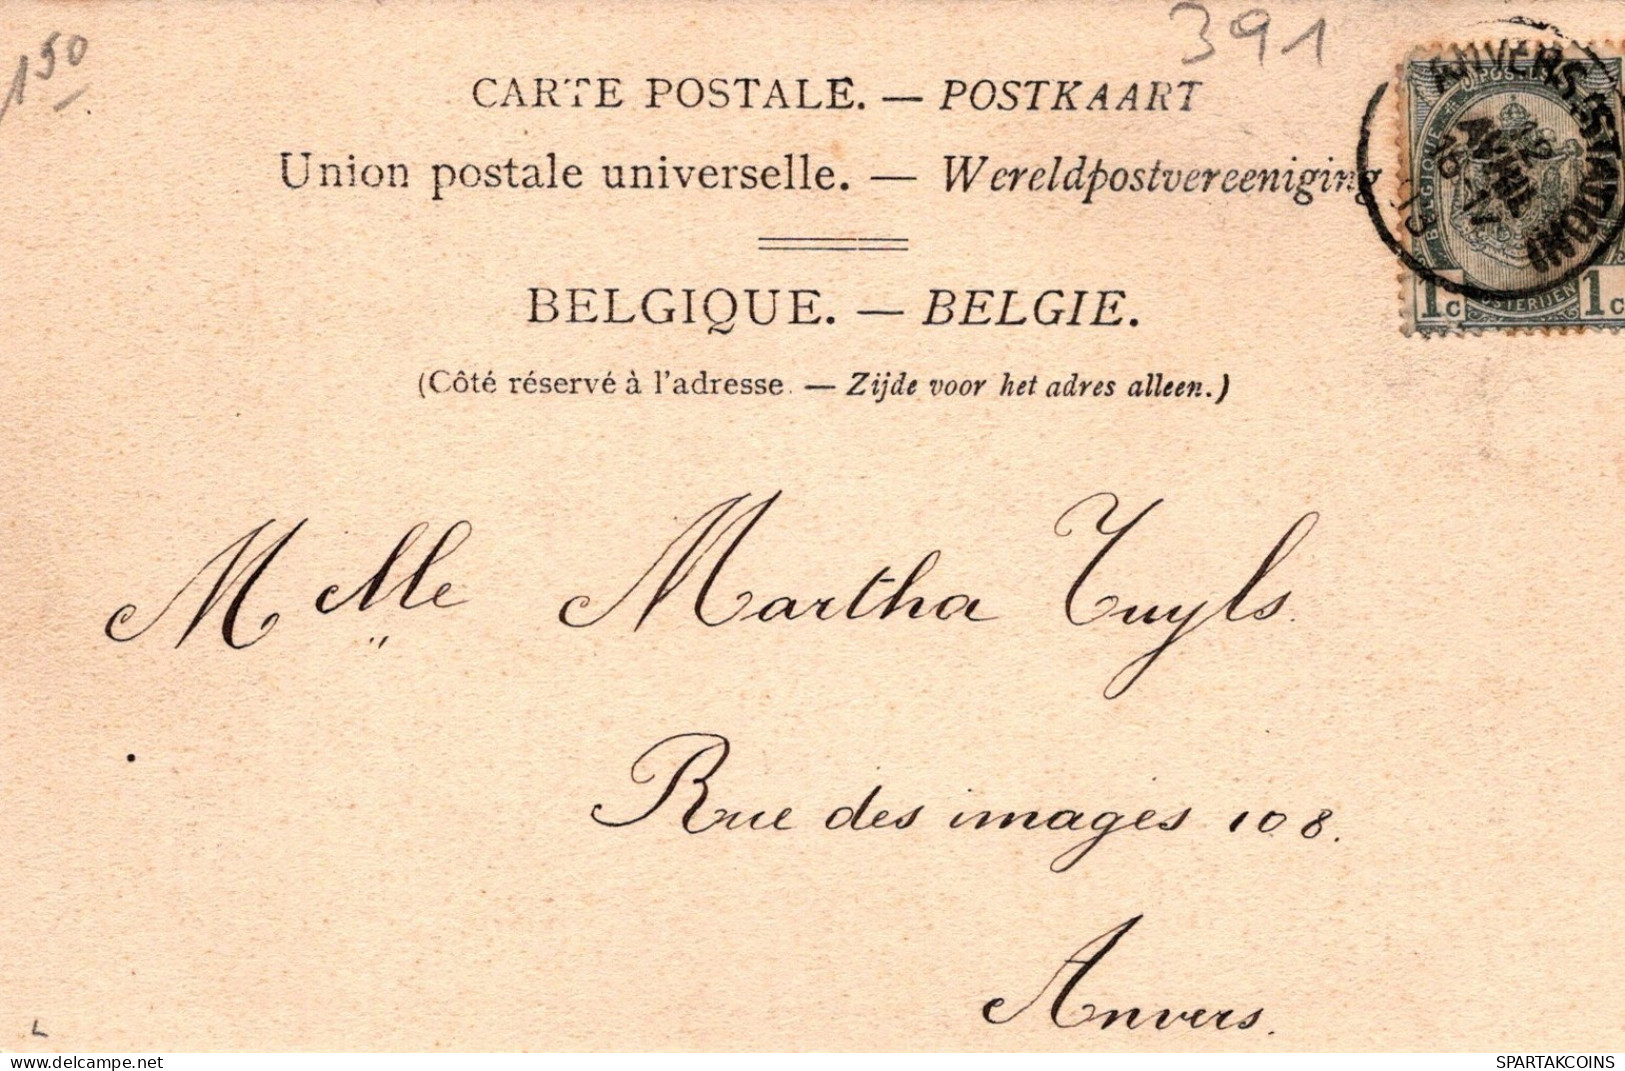 150
391
CARTE POSTALE. — POSTKAART
Union postale universelle. — Wereldpostvereeniging
BELGIQUE. — BELGIE.
(Côté réservé à l'adresse. — Zijde voor het adres alleen.)
ANVERS
12
AVRIL
BELGIQUE
1c 1c
Melle Martha Tuyls.
Rue des images 108.
Anvers.
delcampe.net
SPARTAKCOINS